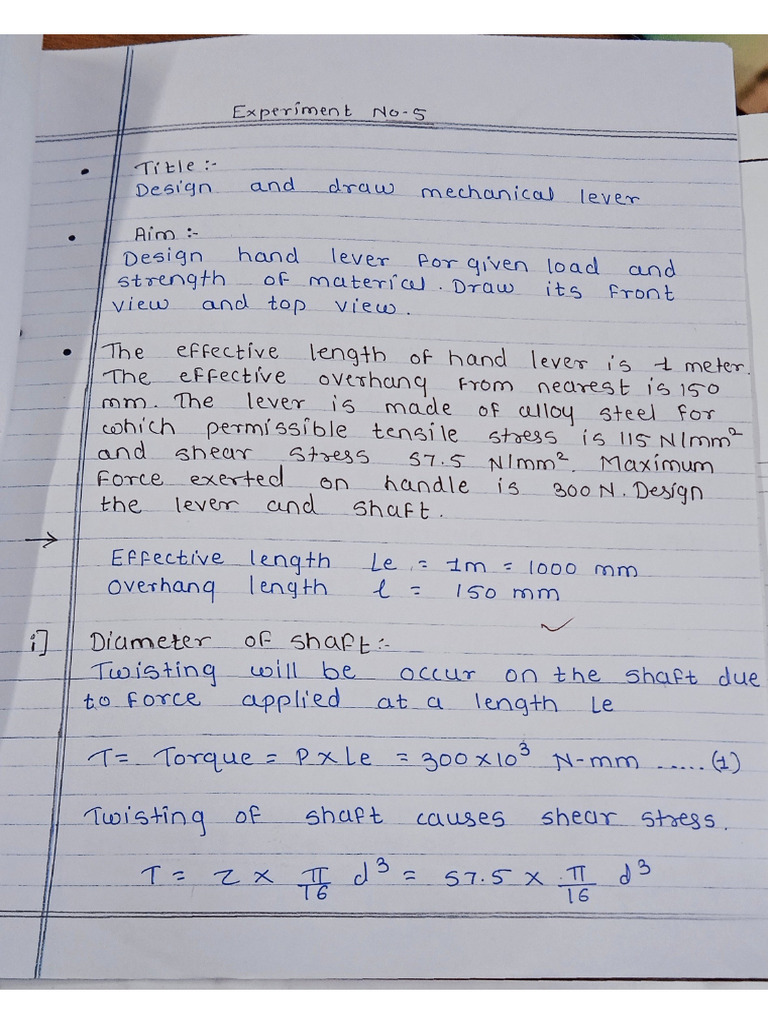 Experiment No-5
• Title :-
Design and draw mechanical lever
• Aim :-
Design hand lever for given load and
strength of material. Draw its front
view and top view.
• The effective length of hand lever is 1 meter.
The effective overhang from nearest is 150
mm. The lever is made of alloy steel for
which permissible tensile stress is 115 N/mm²
and shear stress 57.5 N/mm². Maximum
force exerted on handle is 300 N. Design
the lever and shaft.
→
Effective length Le = 1m = 1000 mm
Overhang length l = 150 mm
i] Diameter of shaft:-
Twisting will be occur on the shaft due
to force applied at a length Le
T= Torque = P×Le = 300×10³ N-mm .....(1)
Twisting of shaft causes shear stress.
T = τ × π/16 d³ = 57.5 × π/16 d³